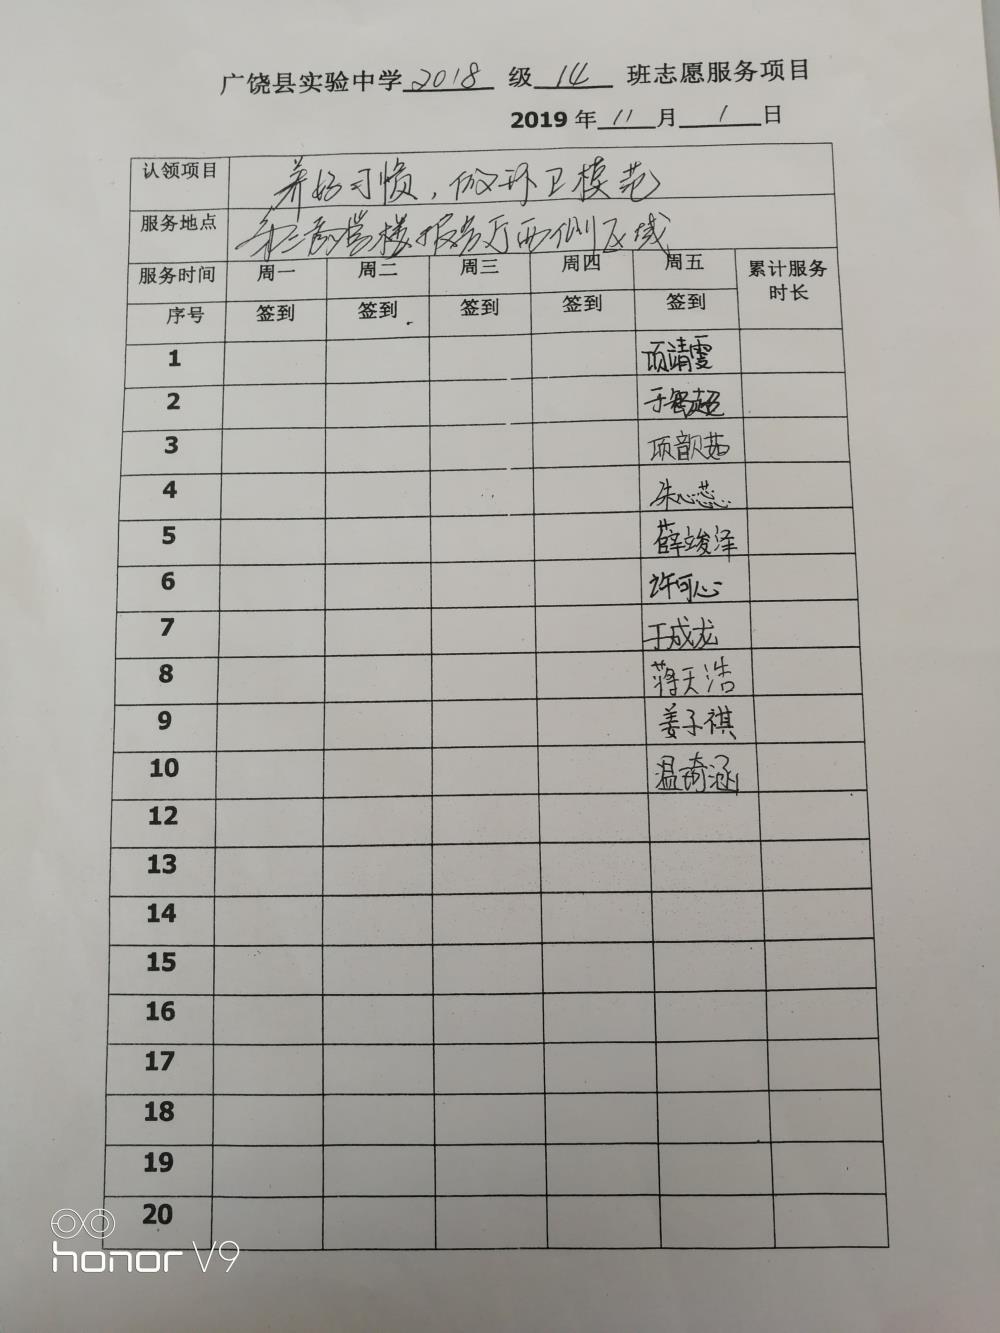 广饶县实验中学 2018 级 14 班志愿服务项目
2019 年 11 月 1 日
认领项目 养好习惯，做环卫模范
服务地点 楼报告厅西侧区域
服务时间 周一 周二 周三 周四 周五 累计服务时长
序号 签到 签到 签到 签到 签到
1 项靖雯
2 于智超
3 项韵茹
4 朱心蕊
5 薛竣泽
6 许可心
7 于成龙
8 蒋天浩
9 姜子祺
10 温琦涵
12
13
14
15
16
17
18
19
20
honor V9